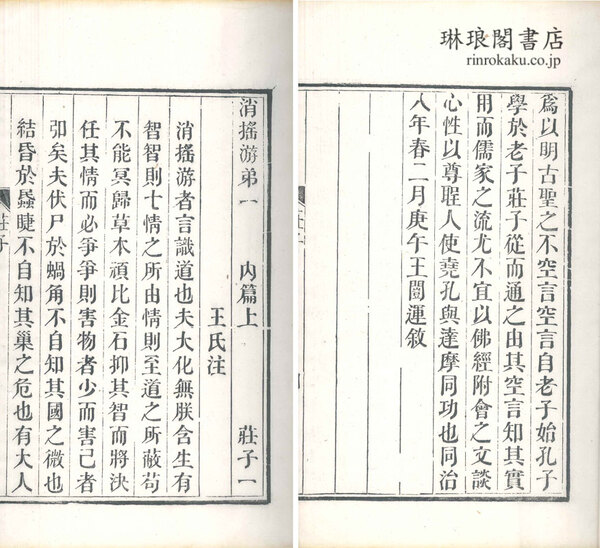 琳琅閣書店
rinrokaku.co.jp
爲以明古聖之不空言空言自老子始孔子
學於老子莊子從而通之由其空言知其實
用而儒家之流尤不宜以佛經附會之文談
心性以尊聖人使堯孔與達摩同功也同治
八年春二月庚午王闓運敘
消搖游弟一 內篇上 莊子一
王氏注
消搖游者言識道也夫大化無朕含生有
智智則七情之所由情則至道之所蔽苟
不能冥歸草木頑比金石抑其智而將決
任其情而必爭爭則害物者少而害己者
卽矣夫伏尸於蝸角不自知其國之微也
結昏於蟁睫不自知其巢之危也有大人
莊子